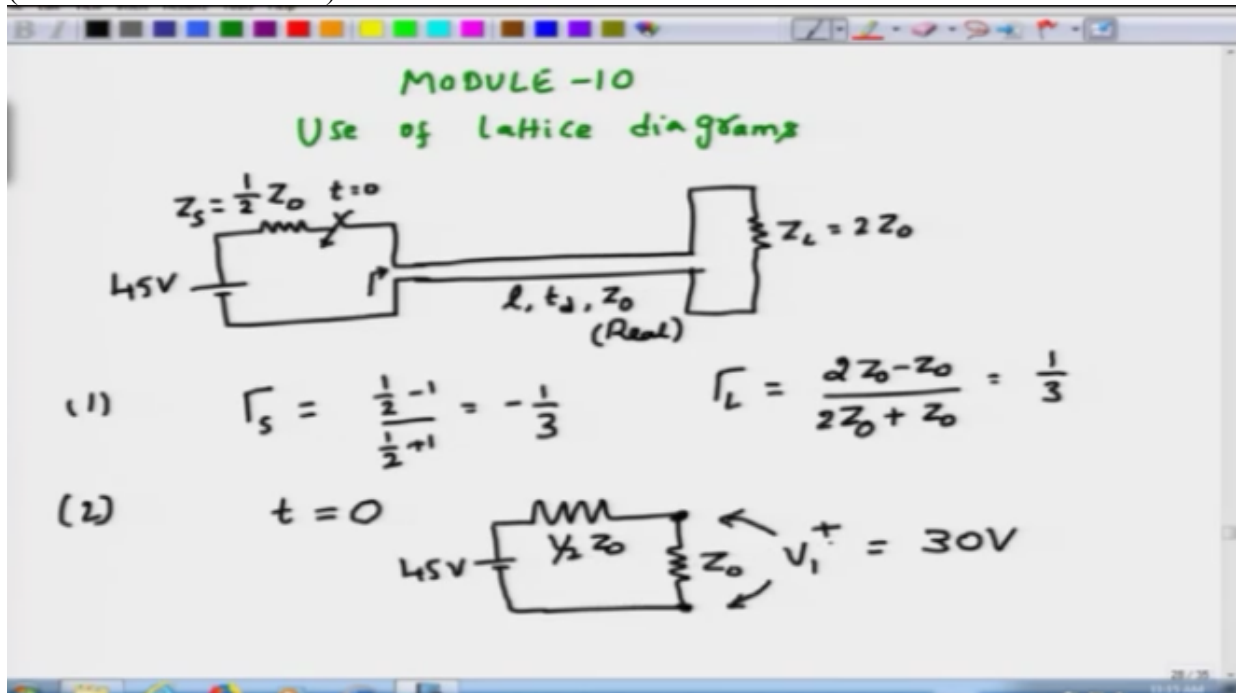 MODULE -10
Use of lattice diagrams
Z_S = 1/2 Z_0 t=0
Z_L = 2Z_0
45V
l, t_d, Z_0
(Real)
(1) Γ_S = (1/2 - 1)/(1/2 + 1) = - 1/3 Γ_L = (2Z_0 - Z_0)/(2Z_0 + Z_0) = 1/3
(2) t = 0
45V 1/2 Z_0 Z_0 V_1^+ = 30V
28/35